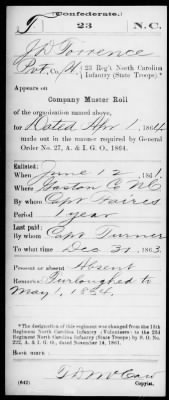 Confederate.
T 23 N.C.
J D Torrence
Pvt, Co. H, 23 Reg't North Carolina
Infantry (State Troops).*
Appears on
Company Muster Roll
of the organization named above,
for Dated Apr 1, 1864
made out in the manner required by General
Order No. 27, A. & I. G. O., 1864.
Enlisted:
When June 12, 1861
Where Gaston Co NC
By whom Capt Faires
Period 1 year
Last paid:
By whom Capt Turner
To what time Dec 31, 1863.
Present or absent Absent
Remarks: Furloughed to
May 1, 1864.
*The designation of this regiment was changed from the 13th
Regiment North Carolina Infantry (Volunteers) to the 23d
Regiment North Carolina Infantry (State Troops) by S. O. No.
222, A. & I. G. O., dated November 14, 1861.
Book mark:
(642) Copyist.